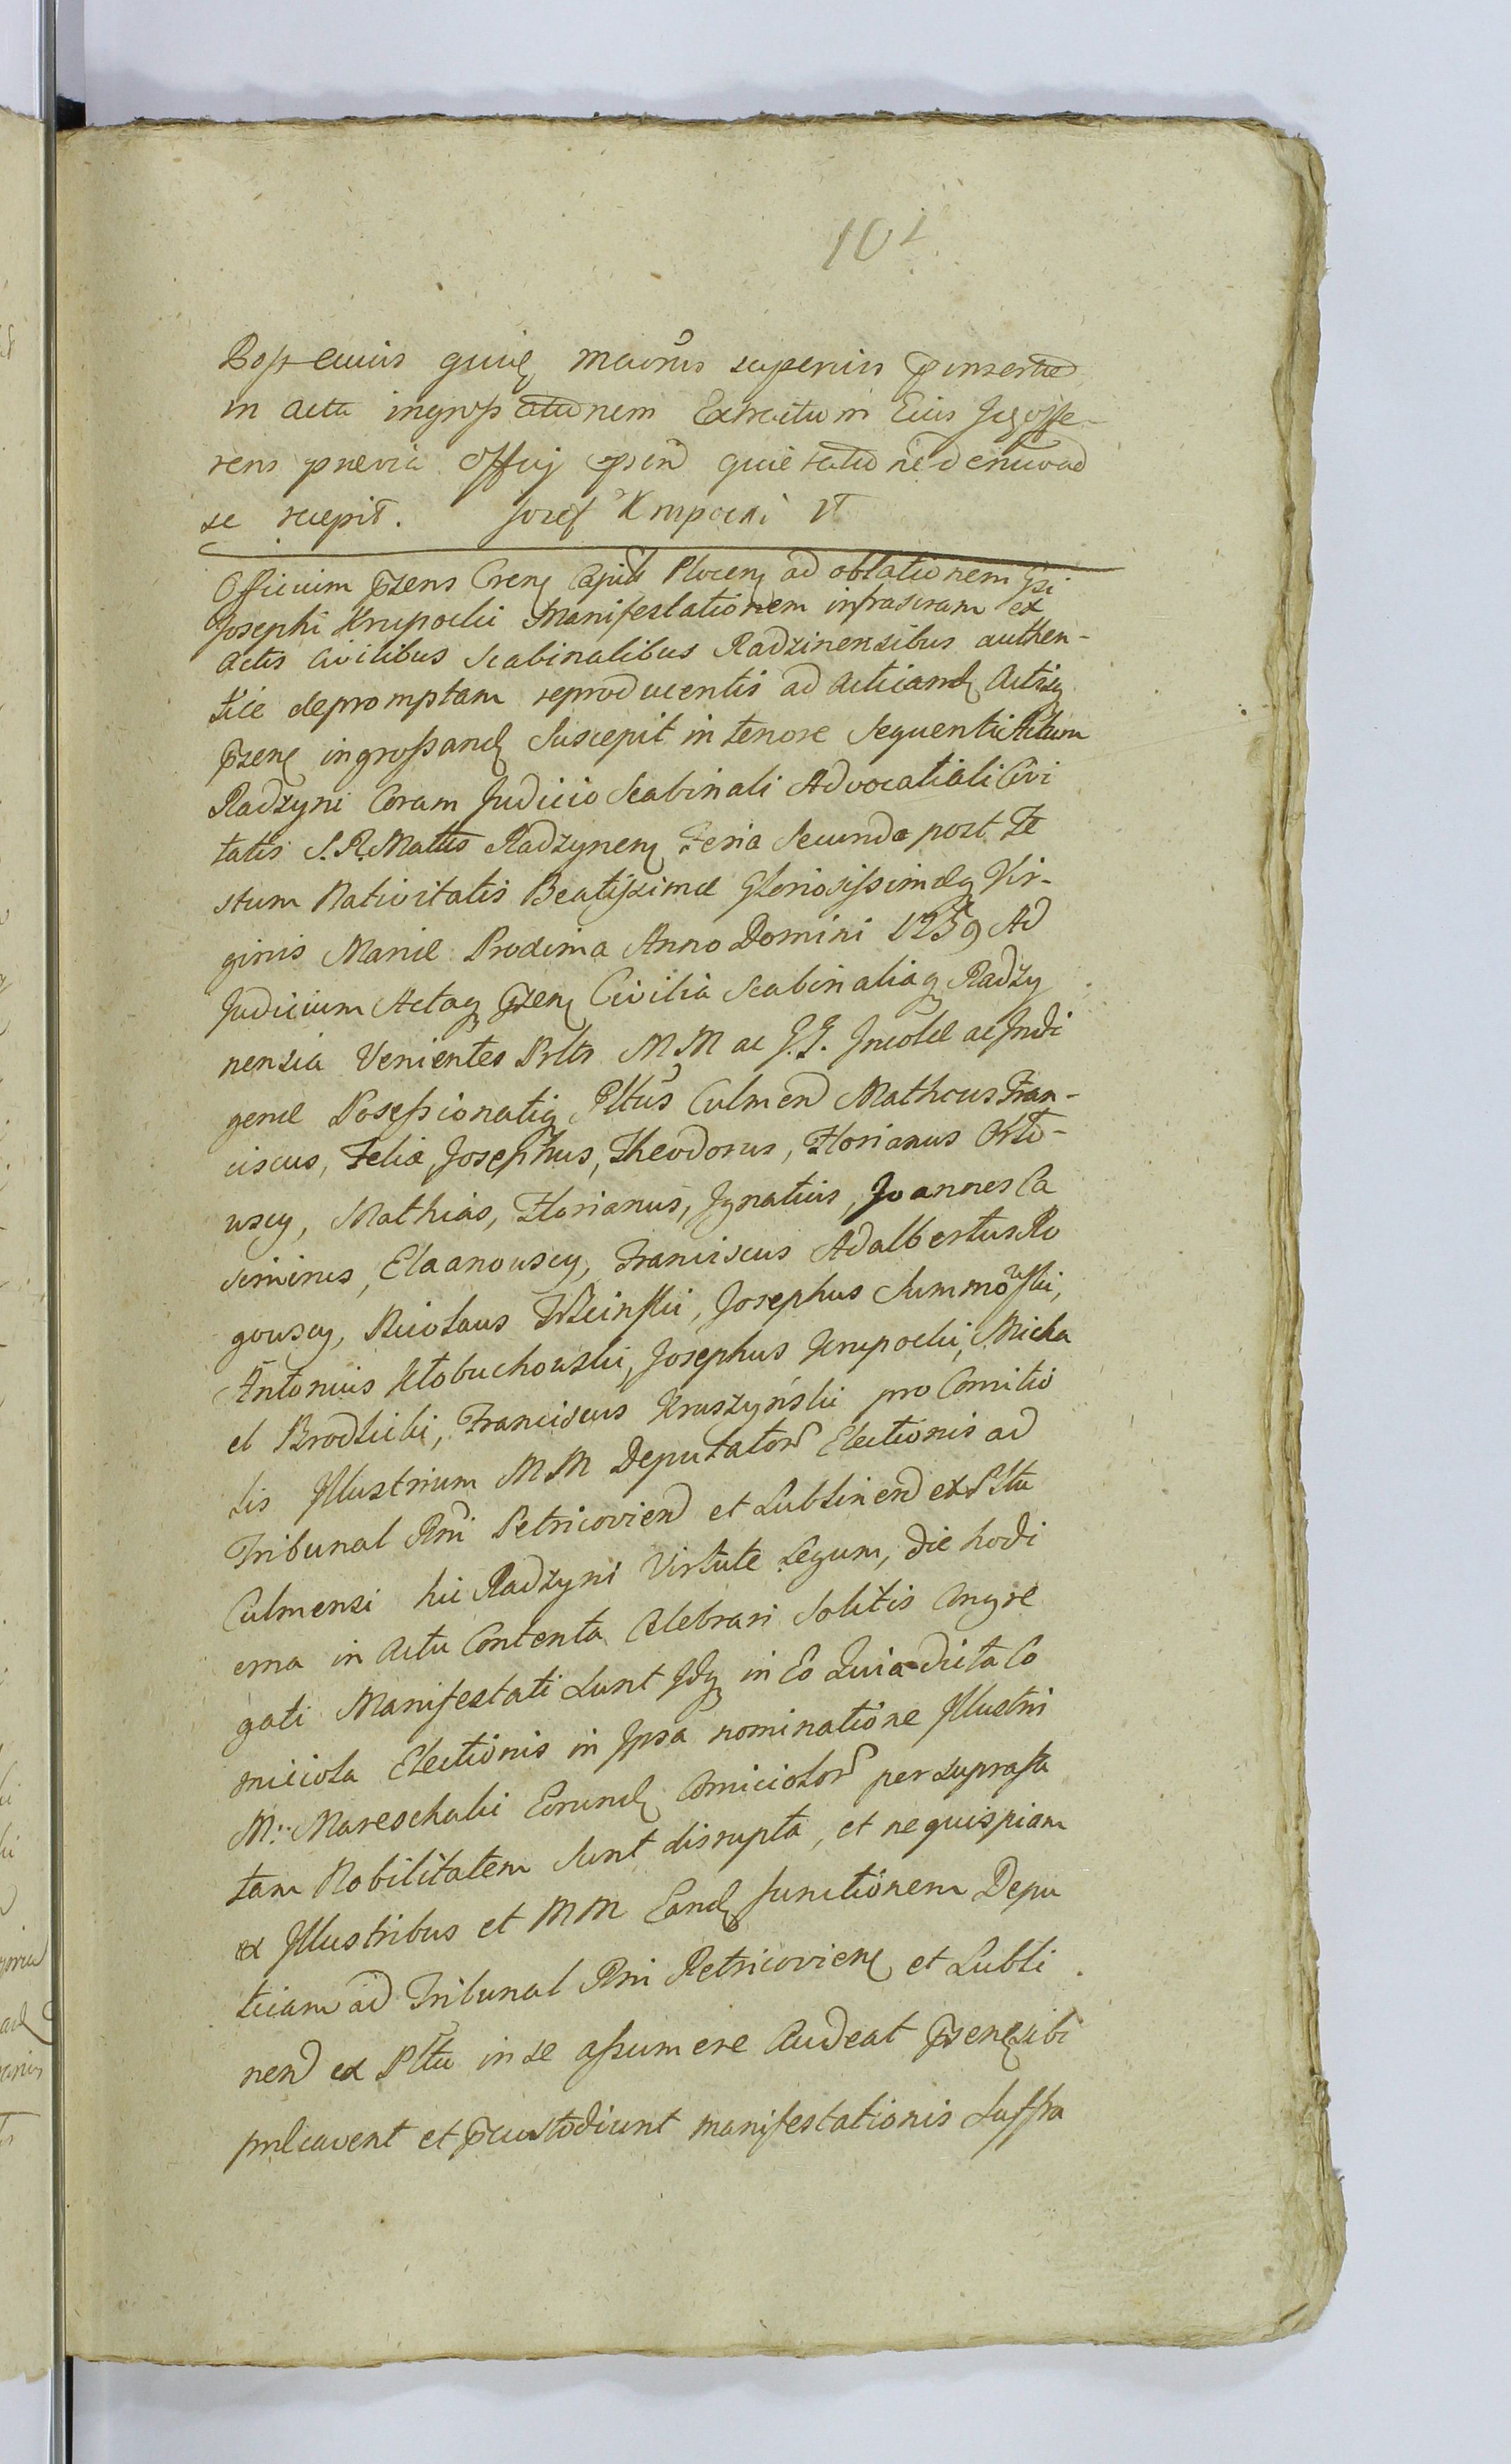 101
Post cuius quidē manūs superius pinsertā
in acta ingrossationem Extractum Eius Jgoffe-
rens previa Offcij psen quietatione denuo ad
se recepit. Jozef Krupocki
Officium pzens Crens Capitlē Plocens ad oblationem Gsi
Josephi Krupocki Manifestationem infrascram ex
Actis Civilibus Scabinalibus Radzinensibus authen-
tice depromptam reproducentis ad acticand Actisq
pzens ingrossand Suscepit in tenore Sequenti Actum
Radzyni Coram Judicio Scabinali Advocatiali Civi
tatis S. R. Mattis Radzynens Feria Secunda post Fe
stum Nativitatis Beatissimæ Gloriosissimæq Vir-
ginis Mariæ Proxima Anno Domini 1759 Ad
Judicium Actaq pzens Civilia Scabinaliaq Radzy
nensia Venientes Prltr MM ac G. G. Incolæ ac Indi
genæ Possessionatiq Pltūs Culmens Matheus Fran-
ciscus, Felix, Josephus, Theodorus, Florianus Orło-
wscy, Mathias, Florianus, Ignatius, Joannes Ca
simirus, Elzanowscy, Franciscus Adalbertus Ro
gowscy, Nicolaus Trzcinski, Josephus Summowski,
Antonius Kłobuchowski, Josephus Krupocki, Micha
el Brodzicki, Franciscus Kruszyński pro Comitio
lis Illustrium MM Deputator Electionis ad
Tribunal Rni Petricoviens et Lublinens ex Pltu
Culmensi hic Radzyni Virtute Legum, die hodi
erna in Actu Contenta Celebrari Solitis Congre
gati Manifestati Sunt Idq in Eo Quia dicta Co
miciola Electionis in Ipsa nominatione Illustri
M: Mareschalci Eorund Comiciolor per suprasta
tam Nobilitatem Sunt disrupta, et ne quispiam
ex Illustribus et MM Eand functionem Depu
tciam ad Tribunal Rni Petricoviens et Lubli
nens ex Pltu in se assumere Audeat pzens sibi
precavent et pcustodiunt manifestationis Suffra